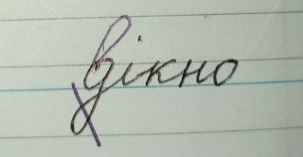 вікно